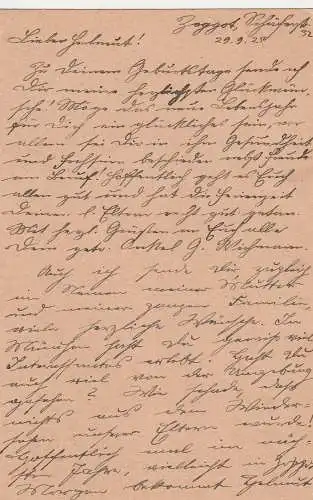 Zoppot, Schulstr. 32
29.9.25
Lieber Helmut!
Zu Deinem Geburtstage sende ich
Dir meine herzlichsten Glückwün-
sche! Möge das neue Lebensjahr
für Dich ein glückliches sein, vor
allem sei Dir in ihm Gesundheit
und Frohsinn beschieden nebst Freude
am Beruf. Hoffentlich geht es Euch
allen gut und hat die Ferienzeit
Deinen l. Eltern recht gut getan.
Mit herzl. Grüßen an Euch alle
Dein getr. Onkel G.
Auch ich sende Dir zugleich
im Namen meiner Mutter
und meiner ganzen Familie,
viele herzliche Wünsche. In
München hast Du gewiß viel
Interessantes erlebt. Hast Du
auch viel von der Umgebung
gesehen? Wie schade, daß
nichts aus dem Wieder-
sehen unserer Eltern wurde!
Hoffentlich mal im näch-
sten Jahre, vielleicht in Zoppot
Morgen bekommt Helmut